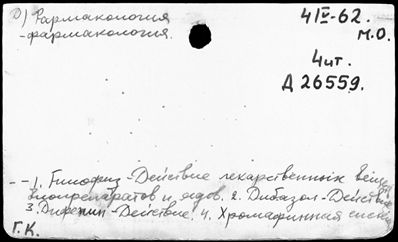 Д) Фармакология
-фармакология.
4 IV-62.
М.О.
4 шт.
Д 26559.
--1. Гипофиз-Действие лекарственных веществ,
биопрепаратов и ядов. 2. Дибазол-Действие
3. Дифенин-Действие. 4. Хромаффинная система
Г.К.